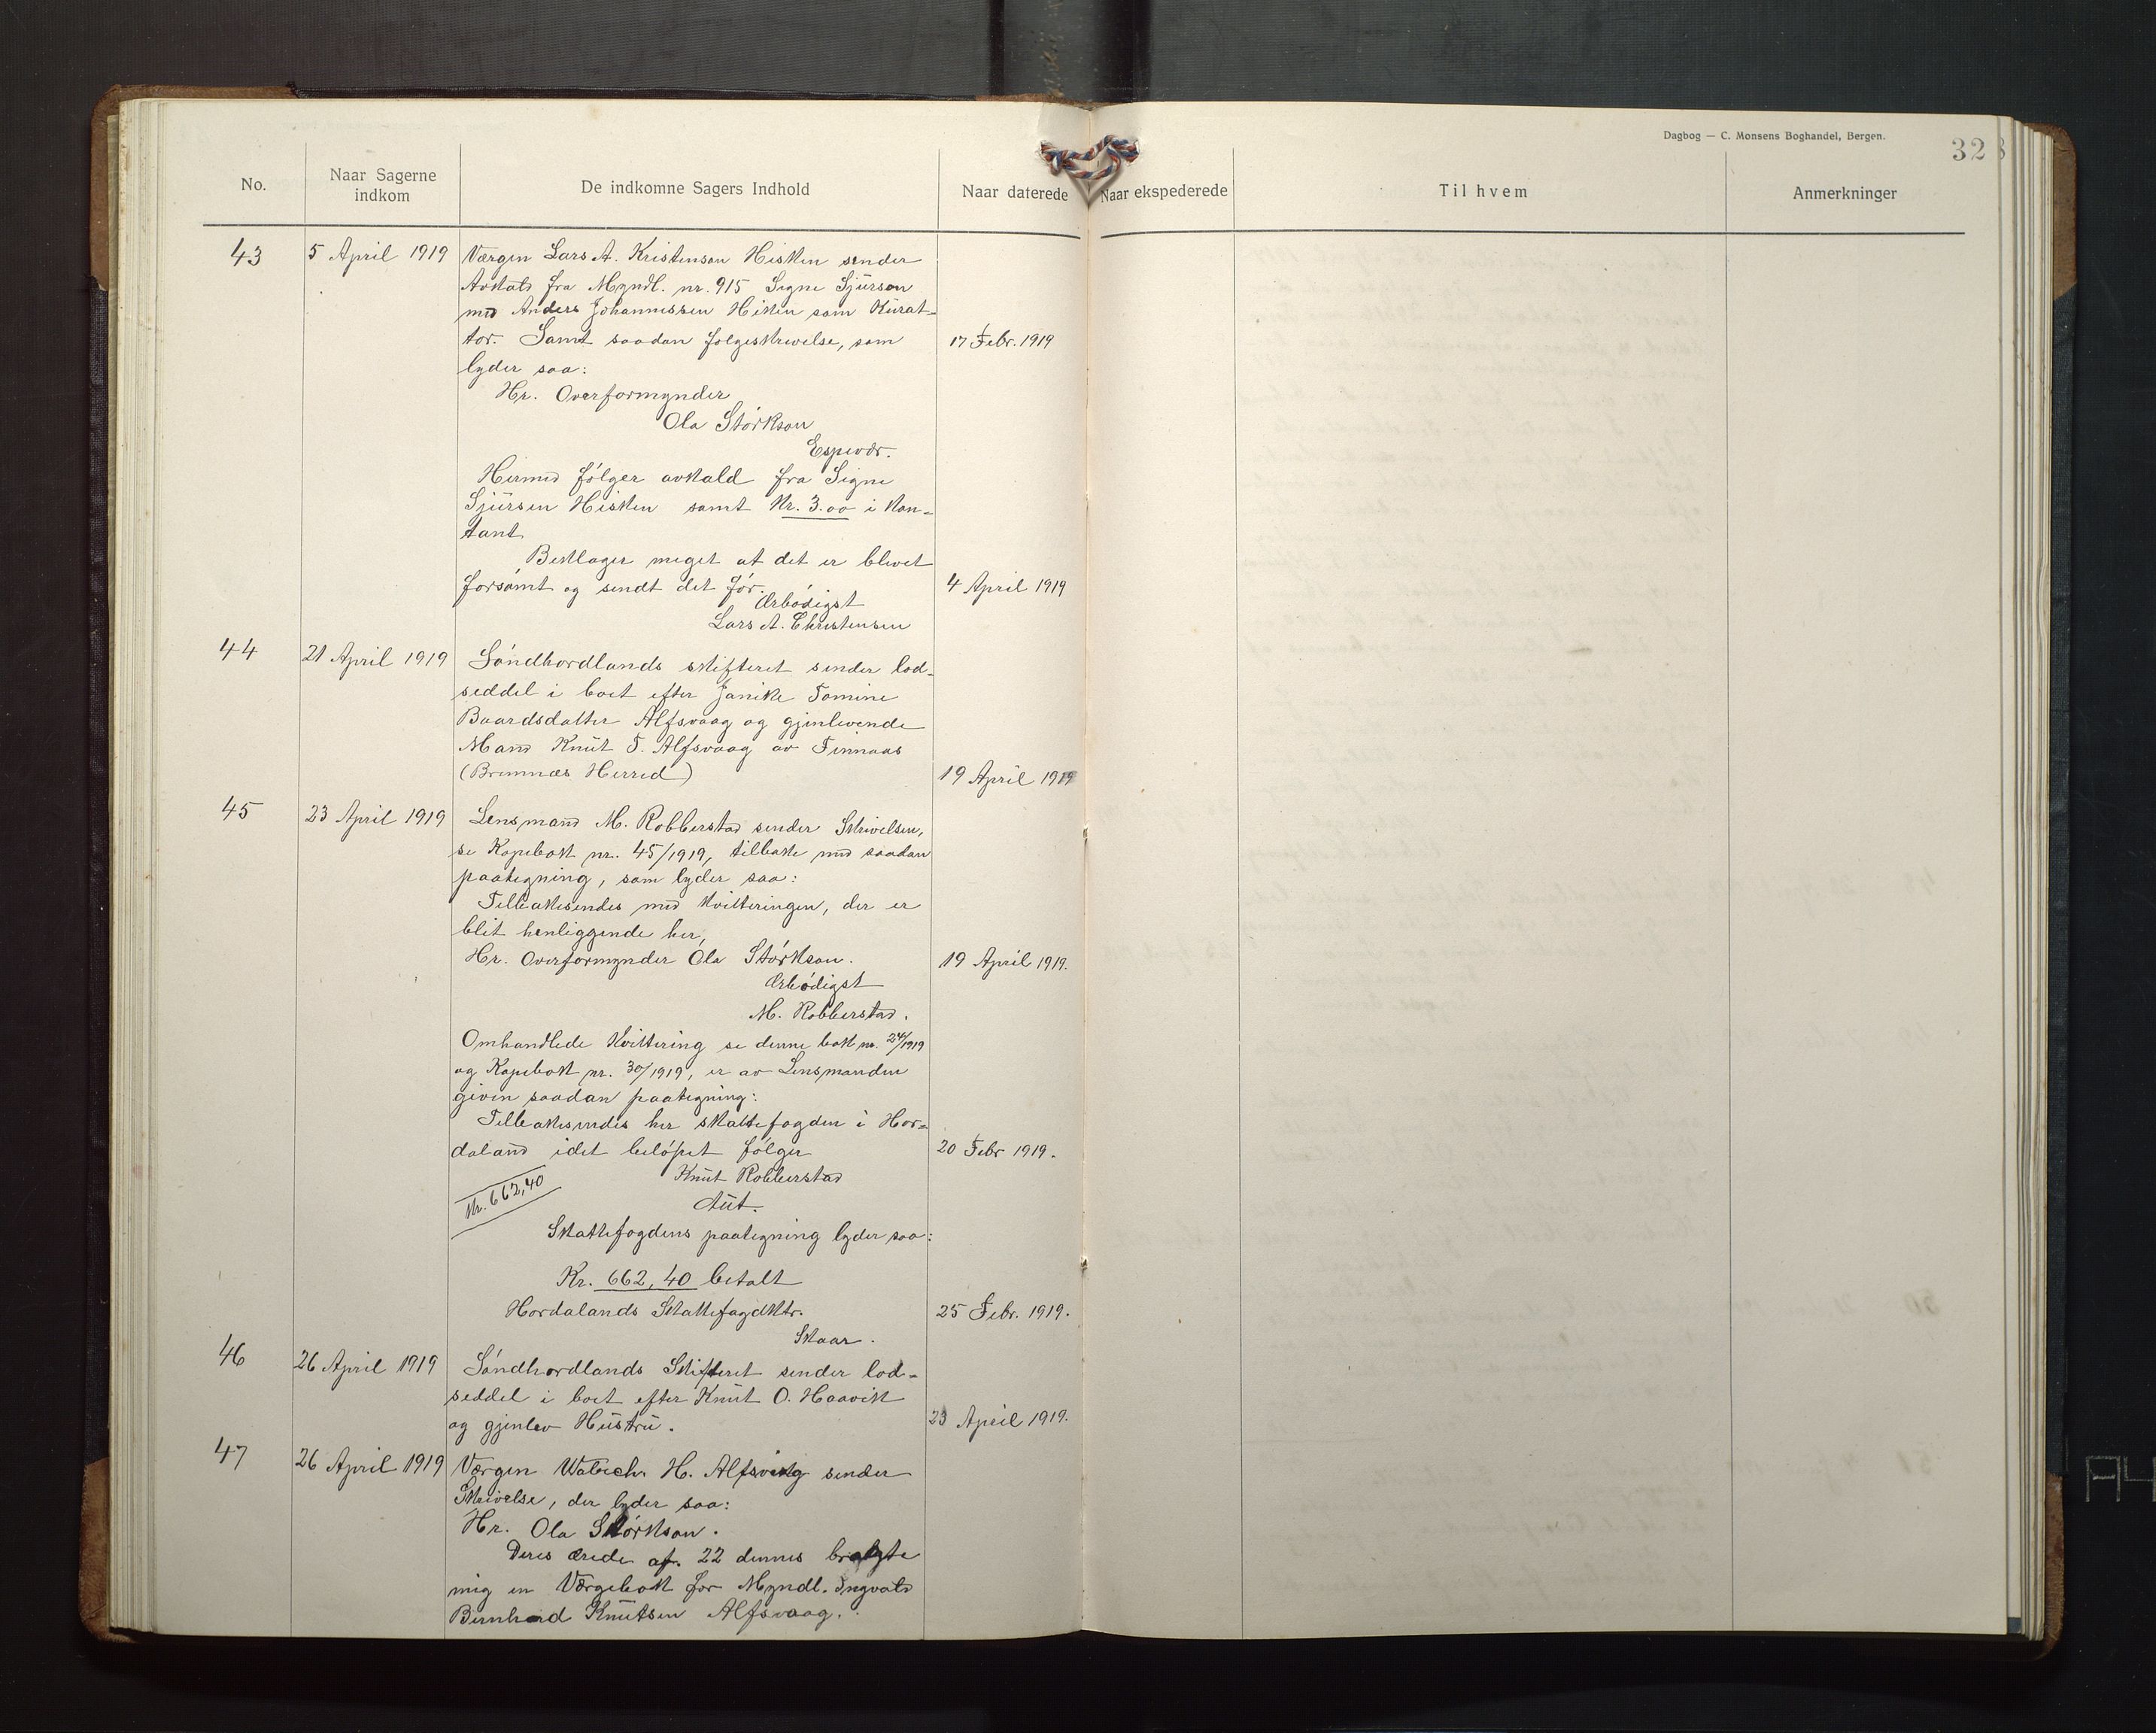 Dagbog — C. Monsens Boghandel, Bergen.
32
No.
Naar Sagerne indkom
De indkomne Sagers Indhold
Naar daterede
Naar ekspederede
Til hvem
Anmerkninger
43 5 April 1919 Værgen Lars A. Kristenson Hisken sender
Avkald fra Myndl. nr. 915 Signe Sjürson
med Anders Johannessen Hisken som Kürat-
tor. Samt saadan følgeskrivelse, som 17 Febr. 1919
lyder saa:
Hr. Overformynder
Ola Störkson
Espevær.
Hermed følger avkald fra Signe
Sjürsen Hisken samt Kr. 3.00 i kon-
tant.
Beklager meget at det er blevet
forsømt og sendt det før. 4 April 1919
Ærbødigst
Lars A. Christensen
44 21 April 1919 Søndhordlands skifteret sender lod-
seddel i boet efter Janike Tomine
Baardsdatter Alfsvaag og gjenlevende
Mand Knüt T. Alfsvaag av Finnaas
(Bremnæs Herred) 19 April 1919
45 23 April 1919 Lensmand M. Robberstad sender Skrivelsen,
se Kopibok nr. 45/1919, tilbake med saadan
paategning, som lyder saa:
Tilbakesendes med kvitteringen, der er
blit henliggende her,
Hr. Overformynder Ola Störkson. 19 April 1919.
Ærbødigst
M. Robberstad.
Omhandlede Kvittering se denne bok nr. 24/1919
og Kopibok nr. 30/1919, er av Lensmanden
given saadan paategning:
Tilbakesendes hr skattefogden i Hor-
daland idet beløpet følger 20 Febr 1919.
Knüt Robberstad
Aüt.
Kr. 662,40
Skattefogdens paategning lyder saa:
Kr. 662,40 betalt
Hordalands Skattefogdktr. 25 Febr. 1919.
Skaar.
46 26 April 1919 Søndhordlands Skifteret sender lod-
seddel i boet efter Knüt O. Haavik
og gjenlev Hüstrü. 23 April 1919.
47 26 April 1919 Værgen H. Alfsvaag sender
Skrivelse, der lyder saa:
Hr. Ola Störkson.
Deres ærede af. 22 dennes bragte
mig en Værgebok for Myndl. Ingvald
Bernhard Knütsen Alfsvaag.